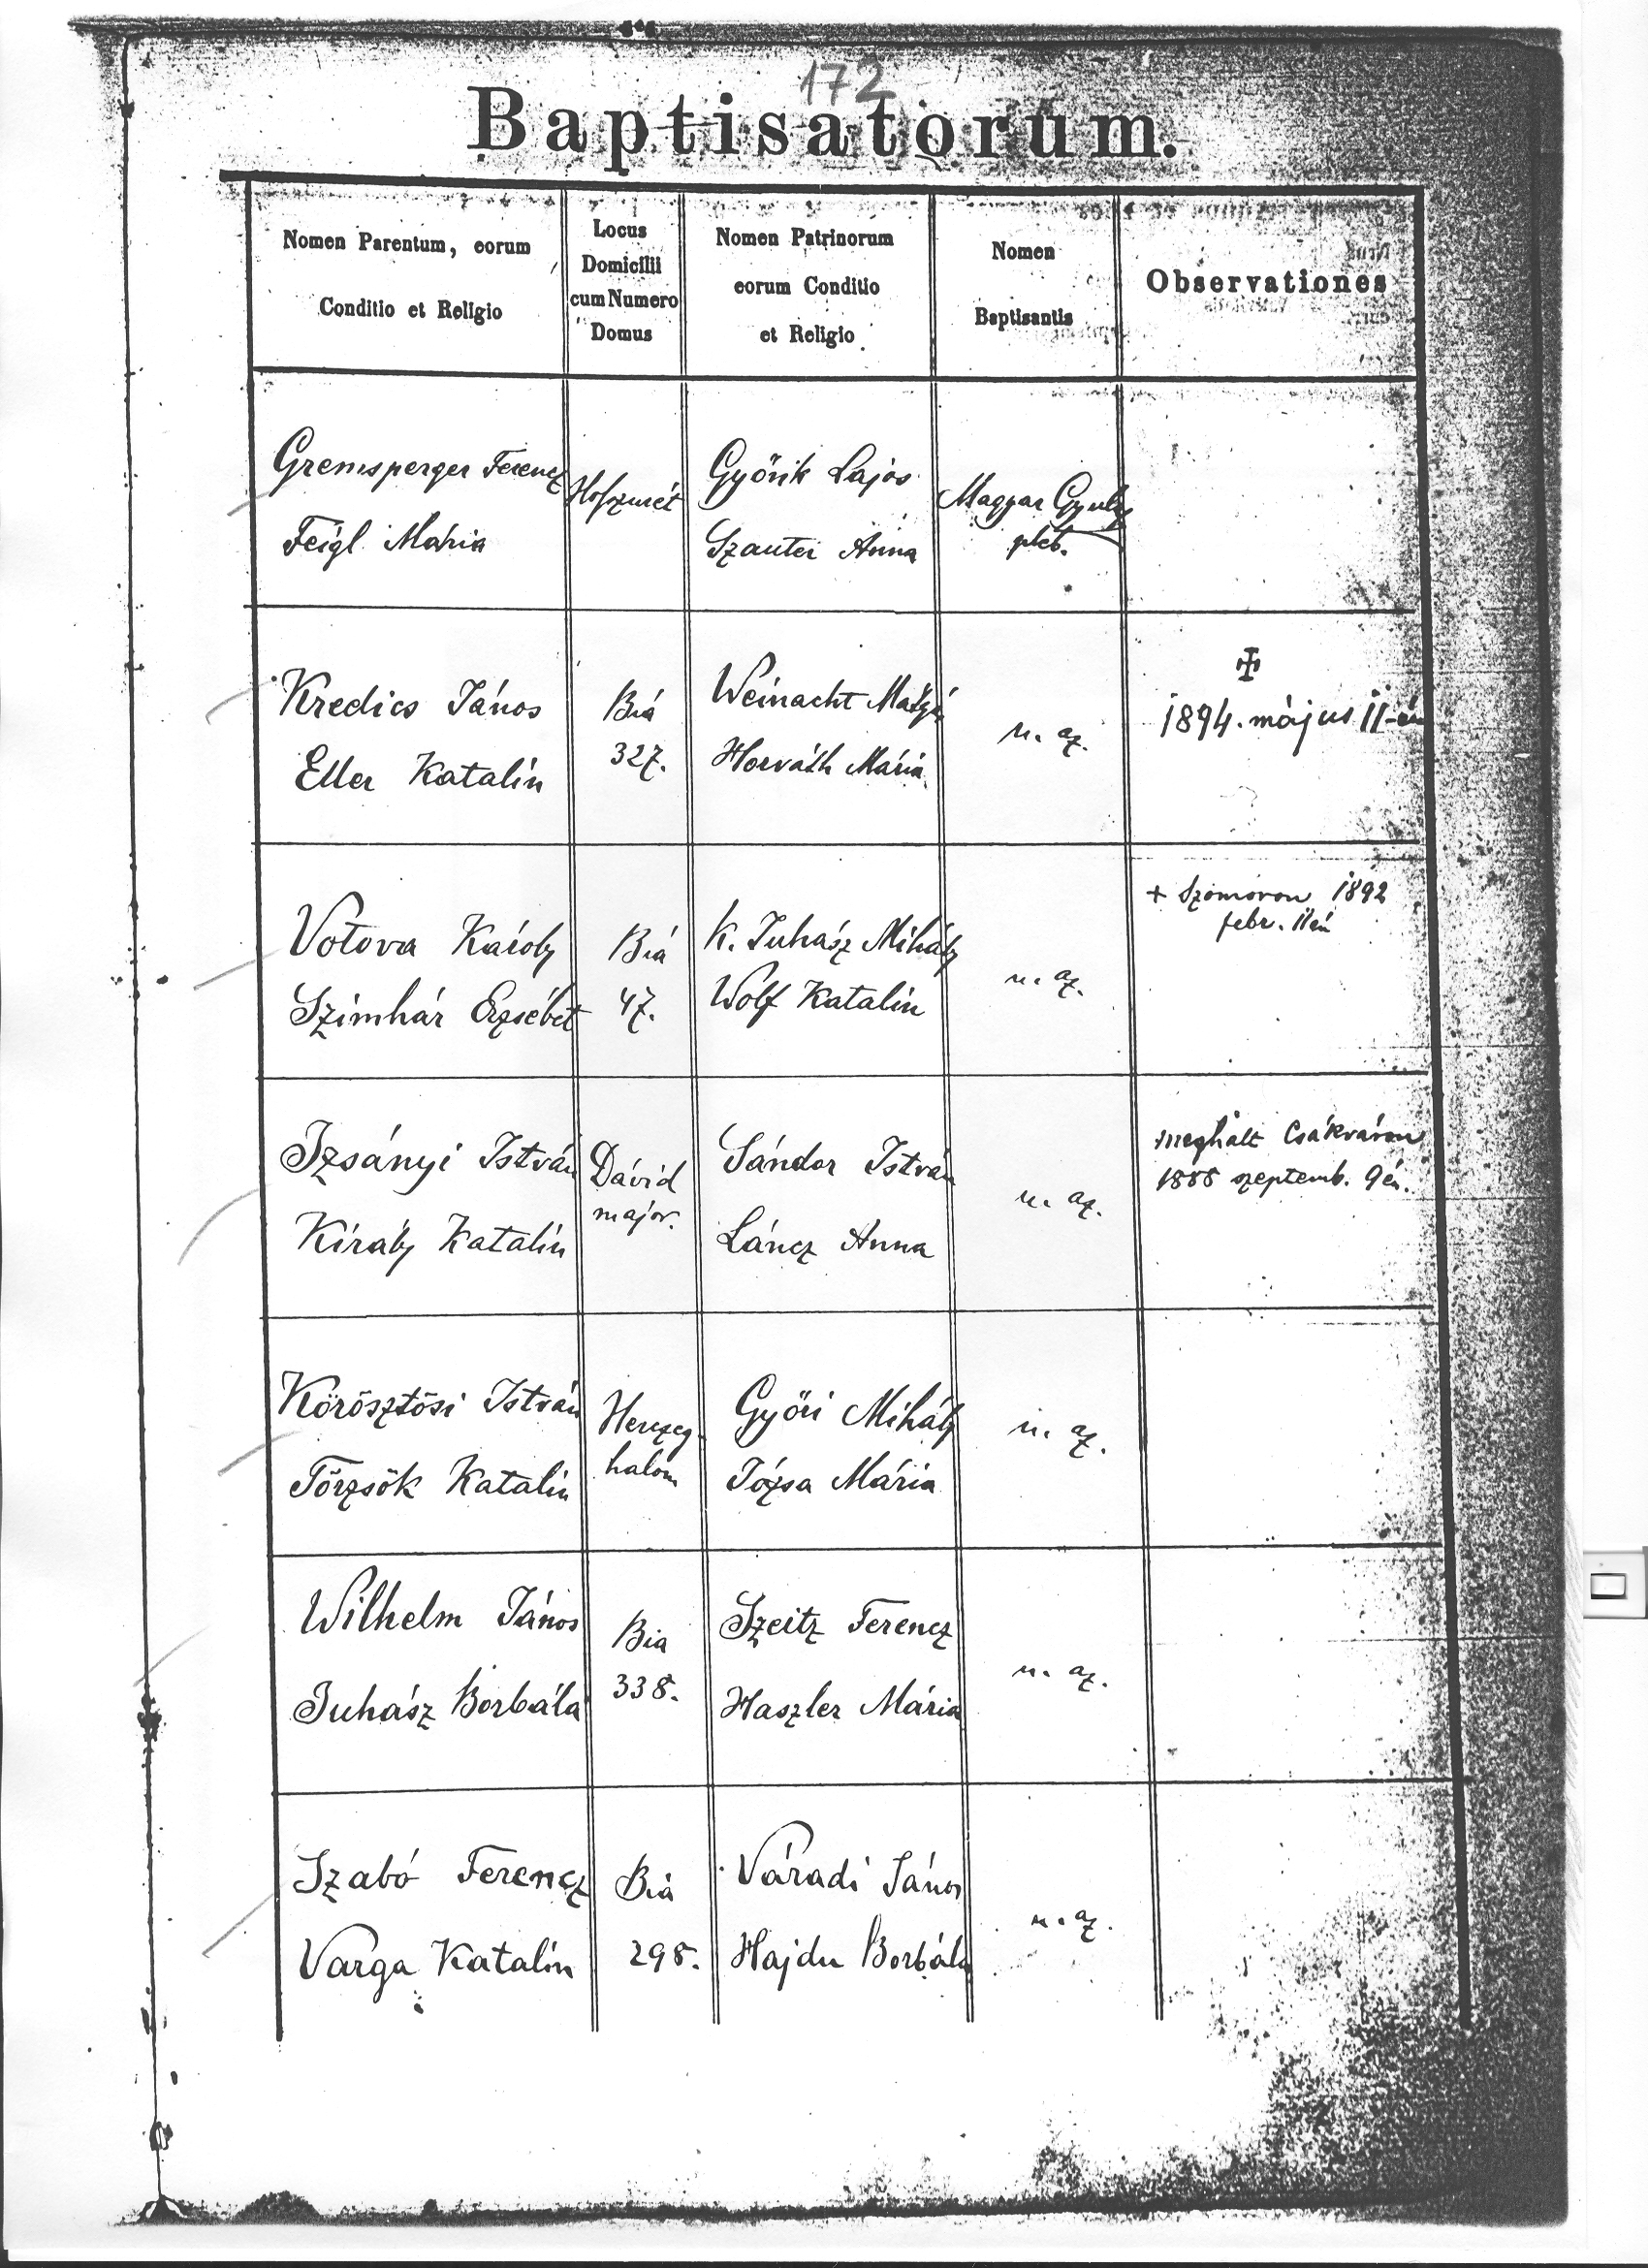 172
Baptisatorum.
Nomen Parentum, eorum
Conditio et Religio
Locus
Domicilii
cum Numero
Domus
Nomen Patrinorum
eorum Conditio
et Religio
Nomen
Baptisantis
Observationes
Feigl Mária
Győrik Lajos
Szauter Anna
Magyar Gyula
pleb.
Kredics János
Eller Katalin
Biá
327.
Weinacht
Horváth Mária
u. az.
1894. május 11-én
Votova Károly
Szimhár Erzsébet
Biá
47.
K. Juhász Mihály
Wolf Katalin
u. az.
+ Szomoron 1892
febr. 11én
Izsányi István
Király Katalin
Dávid
major.
Sándor István
Láncz Anna
u. az.
meghalt Csákváron
1888 szeptemb. 9én.
Körösztösi István
Törzsök Katalin
Herczeg-
halom
Győri Mihály
Józsa Mária
u. az.
Wilhelm János
Juhász Borbála
Bia
338.
Szeitz Ferencz
Haszler Mária
u. az.
Szabó Ferencz
Varga Katalin
Biá
298.
Váradi János
Hajdu Borbála
u. az.